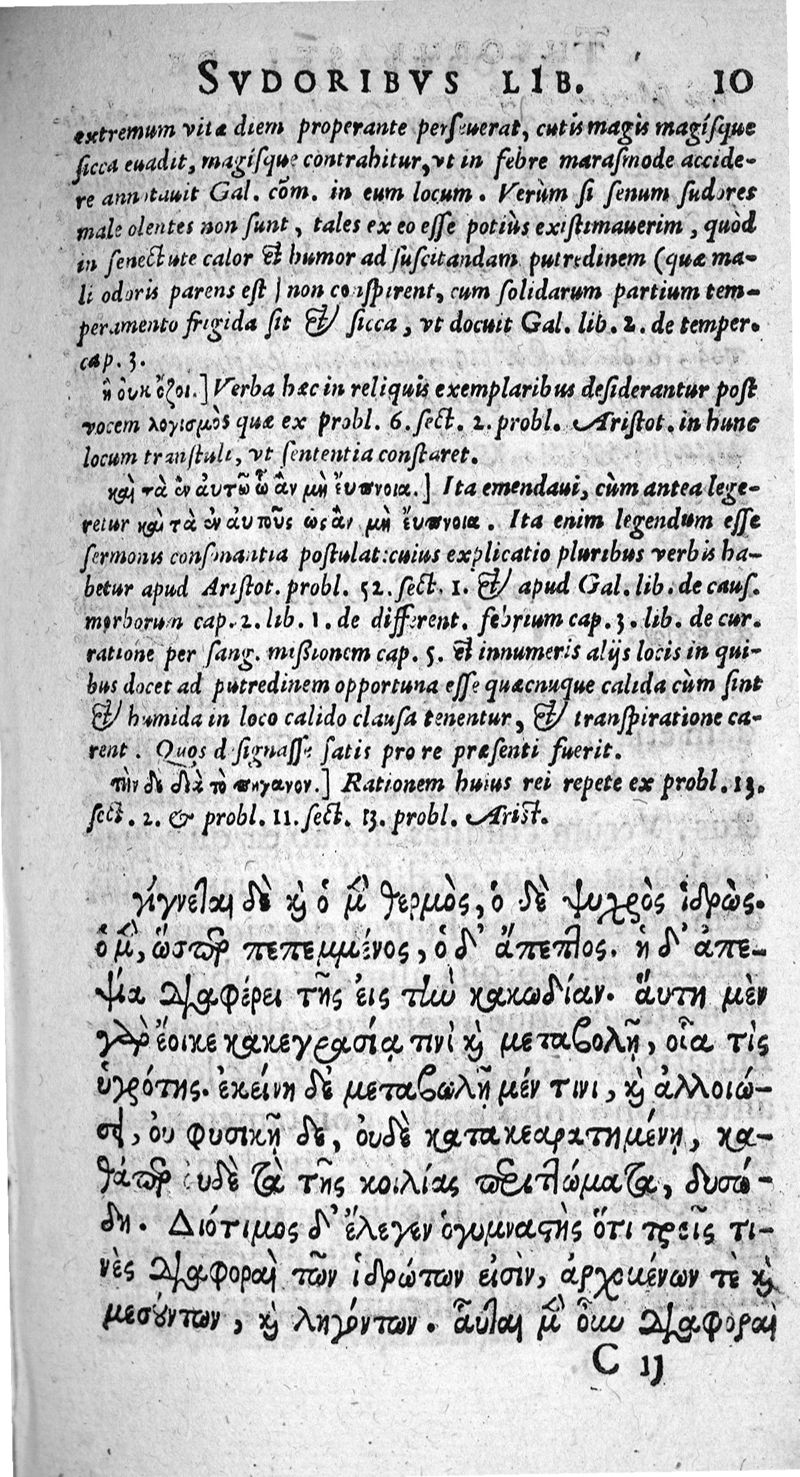 SVDORIBVS LIB. 10
extremum vitæ diem properante perseuerat, cutis magis magisque
sicca euadit, magisque contrahitur, vt in febre marasmode accide-
re annotauit Gal. cõm. in eum locum. Verùm si senum sudores
male olentes non sunt, tales ex eo esse potiùs existimauerim, quòd
in senectute calor & humor ad suscitandam putredinem (quæ ma-
li odoris parens est) non conspirent, cum solidarum partium tem-
peramento frigida sit & sicca, vt docuit Gal. lib. 2. de temper.
cap. 3.
ἢ οὐκ ὄζοι.] Verba hæc in reliquis exemplaribus desiderantur post
vocem λογισμὸς quæ ex probl. 6. sect. 2. probl. Aristot. in hunc
locum transtuli, vt sententia constaret.
καὶ τὰ ἐν αὐτῶ ὧ ἂν μὴ ἔυπνοια.] Ita emendaui, cùm antea lege-
retur καὶ τὰ ἐν αὐτοῦς ὡς ἂν μὴ ἔυπνοια. Ita enim legendum esse
sermonis consonantia postulat: cuius explicatio pluribus verbis ha-
betur apud Aristot. probl. 52. sect. 1. & apud Gal. lib. de caus.
morborum cap. 2. lib. 1. de different. febrium cap. 3. lib. de cur.
ratione per sang. missionem cap. 5. & innumeris alijs locis in qui-
bus docet ad putredinem opportuna esse quæcnuque calida cùm sint
& humida in loco calido clausa tenentur, & transpiratione ca-
rent. Quos d signasse satis pro re præsenti fuerit.
τὴν δὲ διὰ τὸ πήγανον.] Rationem huius rei repete ex probl. 13.
sect. 2. & probl. 11. sect. 13. probl. Arist.
γίγνεται δὲ καὶ ὁ μὲν θερμὸς, ὁ δὲ ψυχρὸς ἱδρὼς.
ὁ μὲν, ὥσπερ πεπεμμένος, ὁ δ' ἄπεπτος. ἡ δ' ἀπε-
ψία διαφέρει τῆς εἰς τὴν κακωδίαν. ἅυτη μὲν
γὰρ ἔοικε κακεγρασία τινὶ καὶ μεταβολῇ, οἷα τὶς
ὑγρότης. ἐκείνη δὲ μεταβωλῇ μέν τινι, καὶ ἀλλοιώ-
σει, ου φυσικῇ δε, ουδὲ κατακεκρατημένῃ, κα-
θάπερ ουδὲ τὰ τῆς κοιλίας περιττώματα, δυσώ-
δη. Διότιμος δ' ἔλεγεν ὁ γυμναστὴς ὅτι τρεῖς τι-
νὲς διαφοραὶ τῶν ἱδρώτων εισὶν, ἀρχομένων τὲ καὶ
μεσούντων, καὶ ληγόντων. ἇυται μὲν οὖν διαφοραὶ
C ij